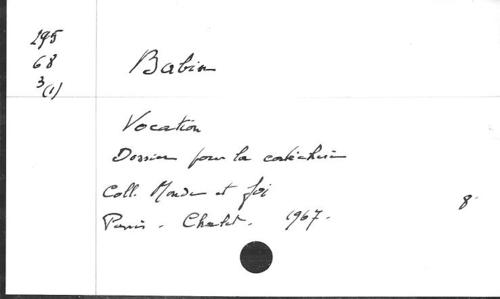 295
68
3(1)
Babin
Vocation
Dossier pour la catéchèse
Coll. Monde et foi
Paris - Chalet - 1967.
8°